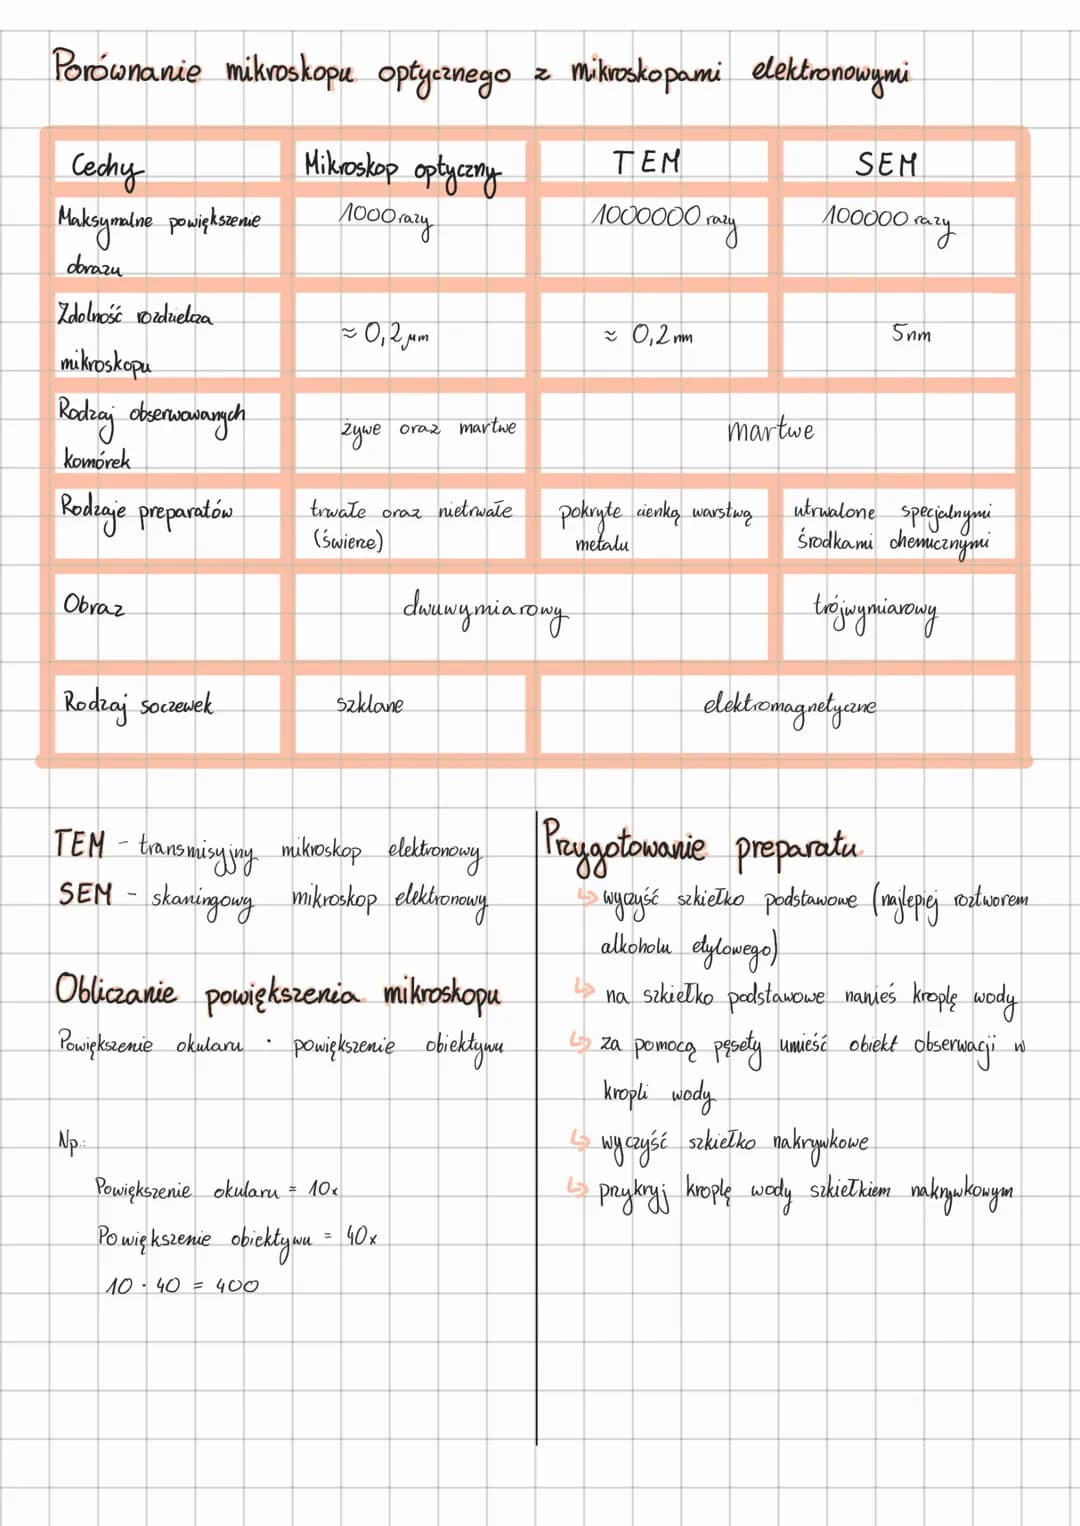 Porównanie mikroskopu optycznego z mikroskopami elektronowymi
Cechy Mikroskop optyczny TEM SEM
Maksymalne powiększenie obrazu 1000 razy 1000000 razy 100000 razy
Zdolność rozdzielcza mikroskopu ≈ 0,2 µm ≈ 0,2 nm 5nm
Rodzaj obserwowanych komórek żywe oraz martwe martwe
Rodzaje preparatów trwałe oraz nietrwałe (świeże) pokryte cienką warstwą metalu utrwalone specjalnymi środkami chemicznymi
Obraz dwuwymiarowy trójwymiarowy
Rodzaj soczewek szklane elektromagnetyczne
TEM - transmisyjny mikroskop elektronowy
SEM - skaningowy mikroskop elektronowy
Obliczanie powiększenia mikroskopu
Powiększenie okularu · powiększenie obiektywu
Np.:
Powiększenie okularu = 10x
Powiększenie obiektywu = 40x
10 · 40 = 400
Przygotowanie preparatu
↳ wyczyść szkiełko podstawowe (najlepiej roztworem
alkoholu etylowego)
↳ na szkiełko podstawowe nanieś kroplę wody
↳ za pomocą pęsety umieść obiekt obserwacji w
kropli wody
↳ wyczyść szkiełko nakrywkowe
↳ przykryj kroplę wody szkiełkiem nakrywkowym